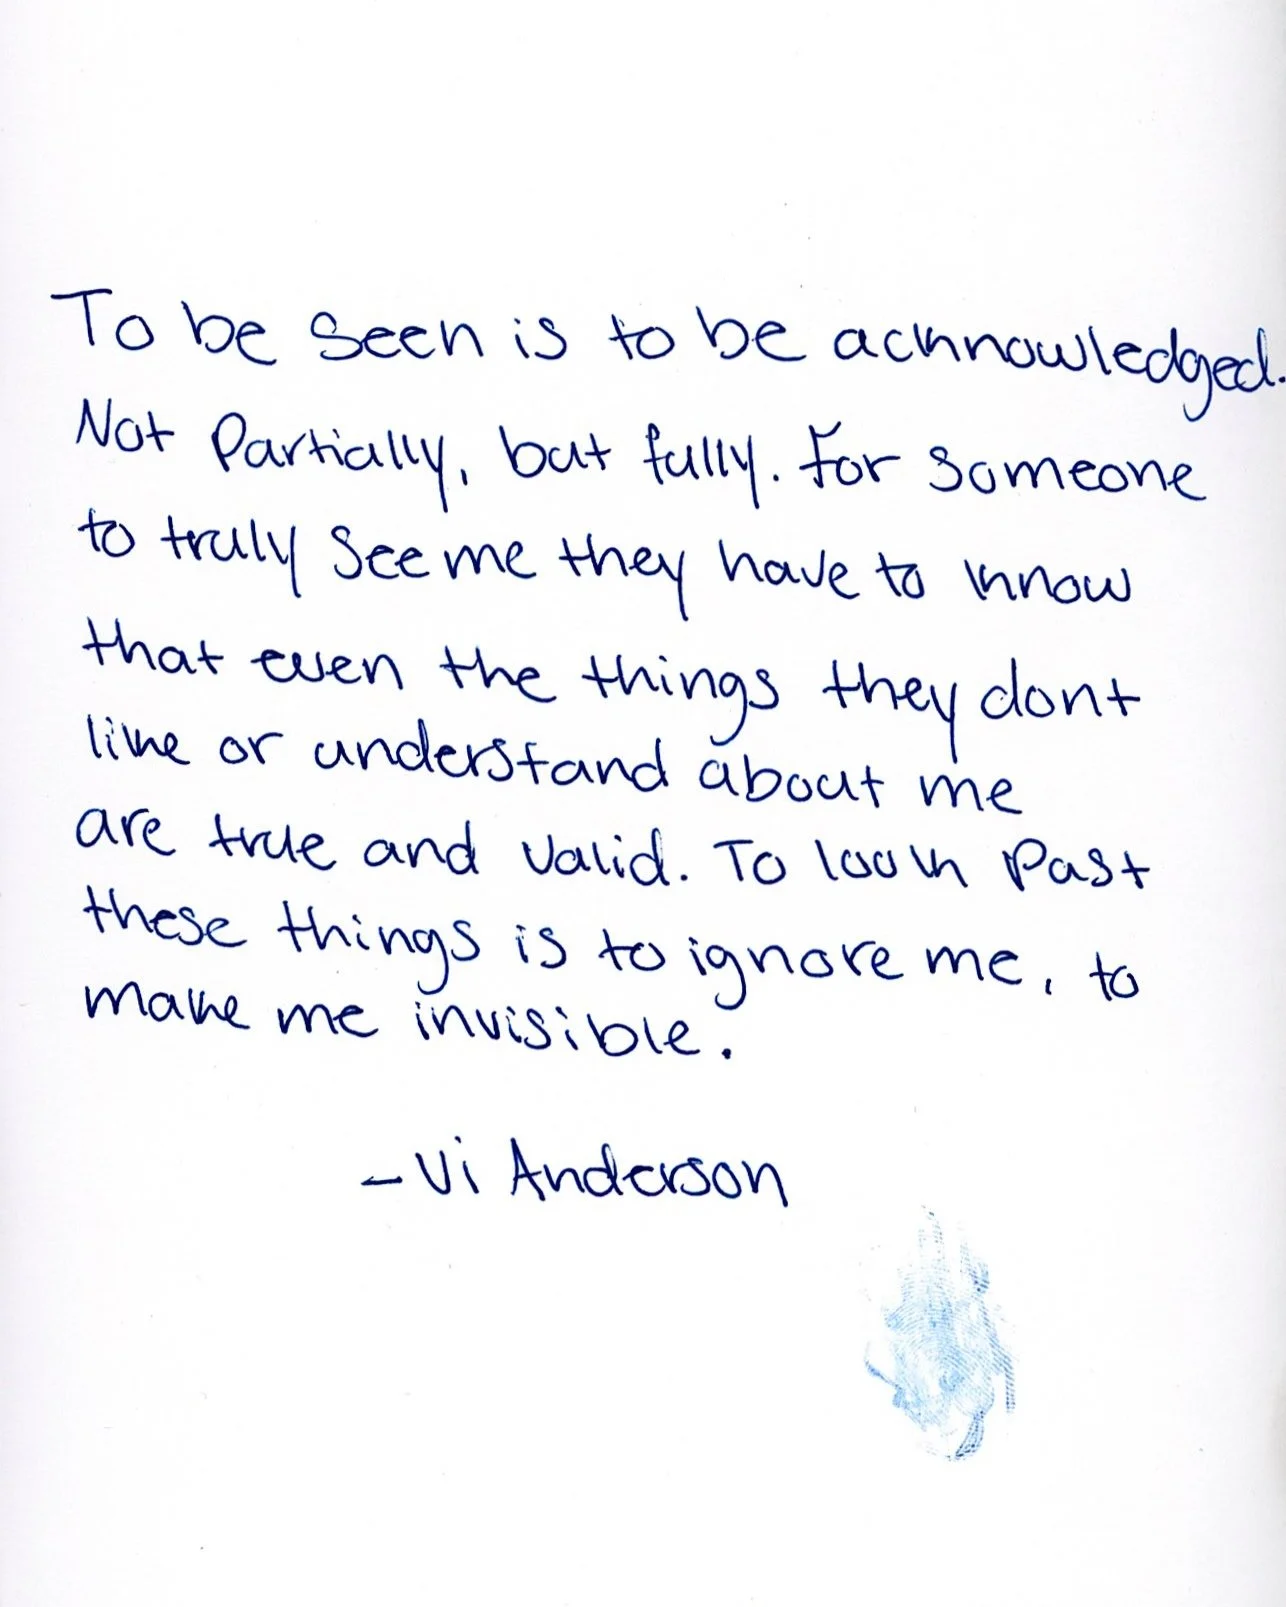 To be seen is to be acknowledged.
Not Partially, but fully. For someone
to truly see me they have to know
that even the things they dont
like or understand about me
are true and valid. To look Past
these things is to ignore me, to
make me invisible.
- Vi Anderson